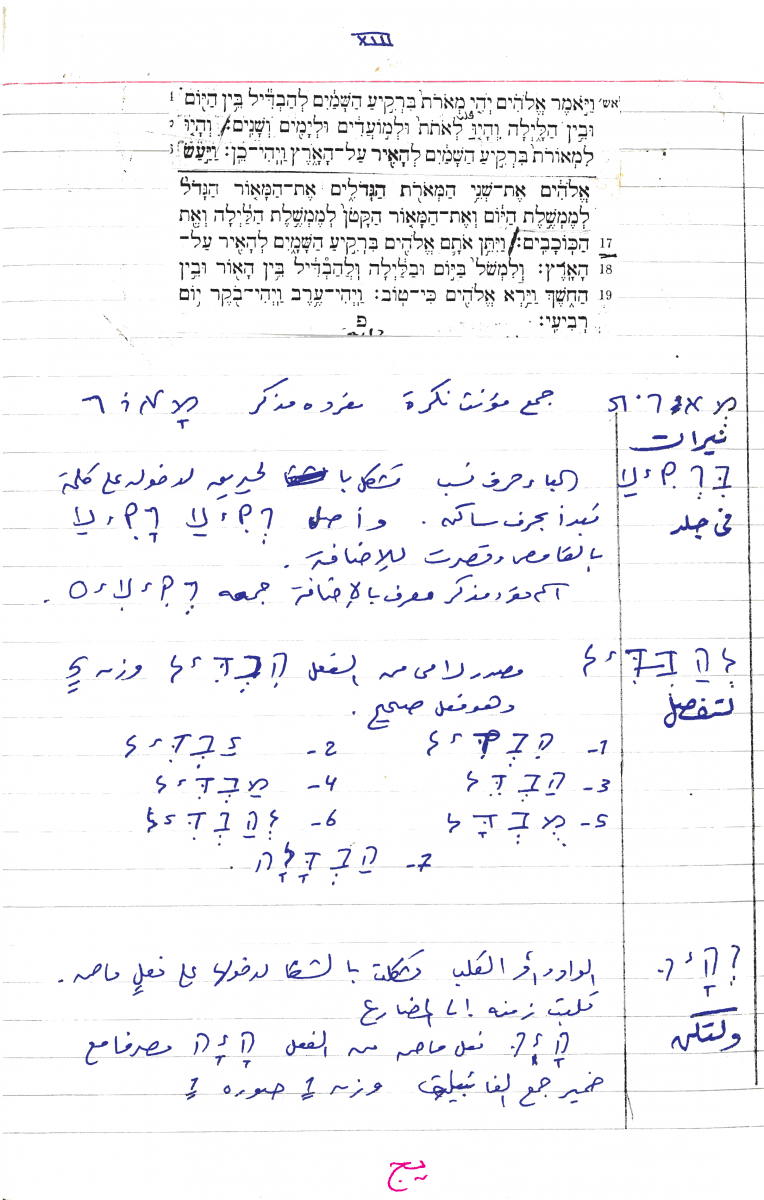 XIII
אש׳ וַיֹּאמֶר אֱלֹהִים יְהִי מְאֹרֹת בִּרְקִיעַ הַשָּׁמַיִם לְהַבְדִּיל בֵּין הַיּוֹם
וּבֵין הַלָּיְלָה וְהָיוּ לְאֹתֹת וּלְמוֹעֲדִים וּלְיָמִים וְשָׁנִים׃ וְהָיוּ
לִמְאוֹרֹת בִּרְקִיעַ הַשָּׁמַיִם לְהָאִיר עַל־הָאָרֶץ וַיְהִי־כֵן׃ וַיַּעַשׂ
אֱלֹהִים אֶת־שְׁנֵי הַמְּאֹרֹת הַגְּדֹלִים אֶת־הַמָּאוֹר הַגָּדֹל
לְמֶמְשֶׁלֶת הַיּוֹם וְאֶת־הַמָּאוֹר הַקָּטֹן לְמֶמְשֶׁלֶת הַלַּיְלָה וְאֵת
17 הַכּוֹכָבִים׃ וַיִּתֵּן אֹתָם אֱלֹהִים בִּרְקִיעַ הַשָּׁמָיִם לְהָאִיר עַל־
18 הָאָרֶץ׃ וְלִמְשֹׁל בַּיּוֹם וּבַלַּיְלָה וּלְהַבְדִּיל בֵּין הָאוֹר וּבֵין
19 הַחֹשֶׁךְ וַיַּרְא אֱלֹהִים כִּי־טוֹב׃ וַיְהִי־עֶרֶב וַיְהִי־בֹקֶר יוֹם
רְבִיעִי׃
פ
جمع مؤنث نكرة مفرده مذكر מָאוֹר
نيرات
בִּרְקִיעַ الباء حرف نسب تشكل با لحيريق لدخوله على كلمة
في جلد تبدأ بحرف ساكن. وأصل רְקִיעַ רָקִיעַ
بالقامص وقصرت للإضافة.
اسم مفرد مذكر معرف بالإضافة جمعه רְקִיעִים.
לְהַבְדִּיל مصدر لامى من الفعل הִבְדִּיל وزنه
لتفصل وهو فعل صحيح.
1- הִבְדִּיל 2- יַבְדִּיל
3- הַבְדֵּל 4- מַבְדִּיל
5- מֻבְדָּל 6- לְהַבְדִּיל
7- הַבְדָּלָה
וְהָיוּ الواو واو القلب شكلت بالشفا لدخولها على فعل ماض.
قلبت زمنه إلى المضارع
ولتكن הָיוּ فعل ماض من الفعل הָיָה مصرف مع
ضمير جمع الغائبين وزنه 1 صوره 1
يج